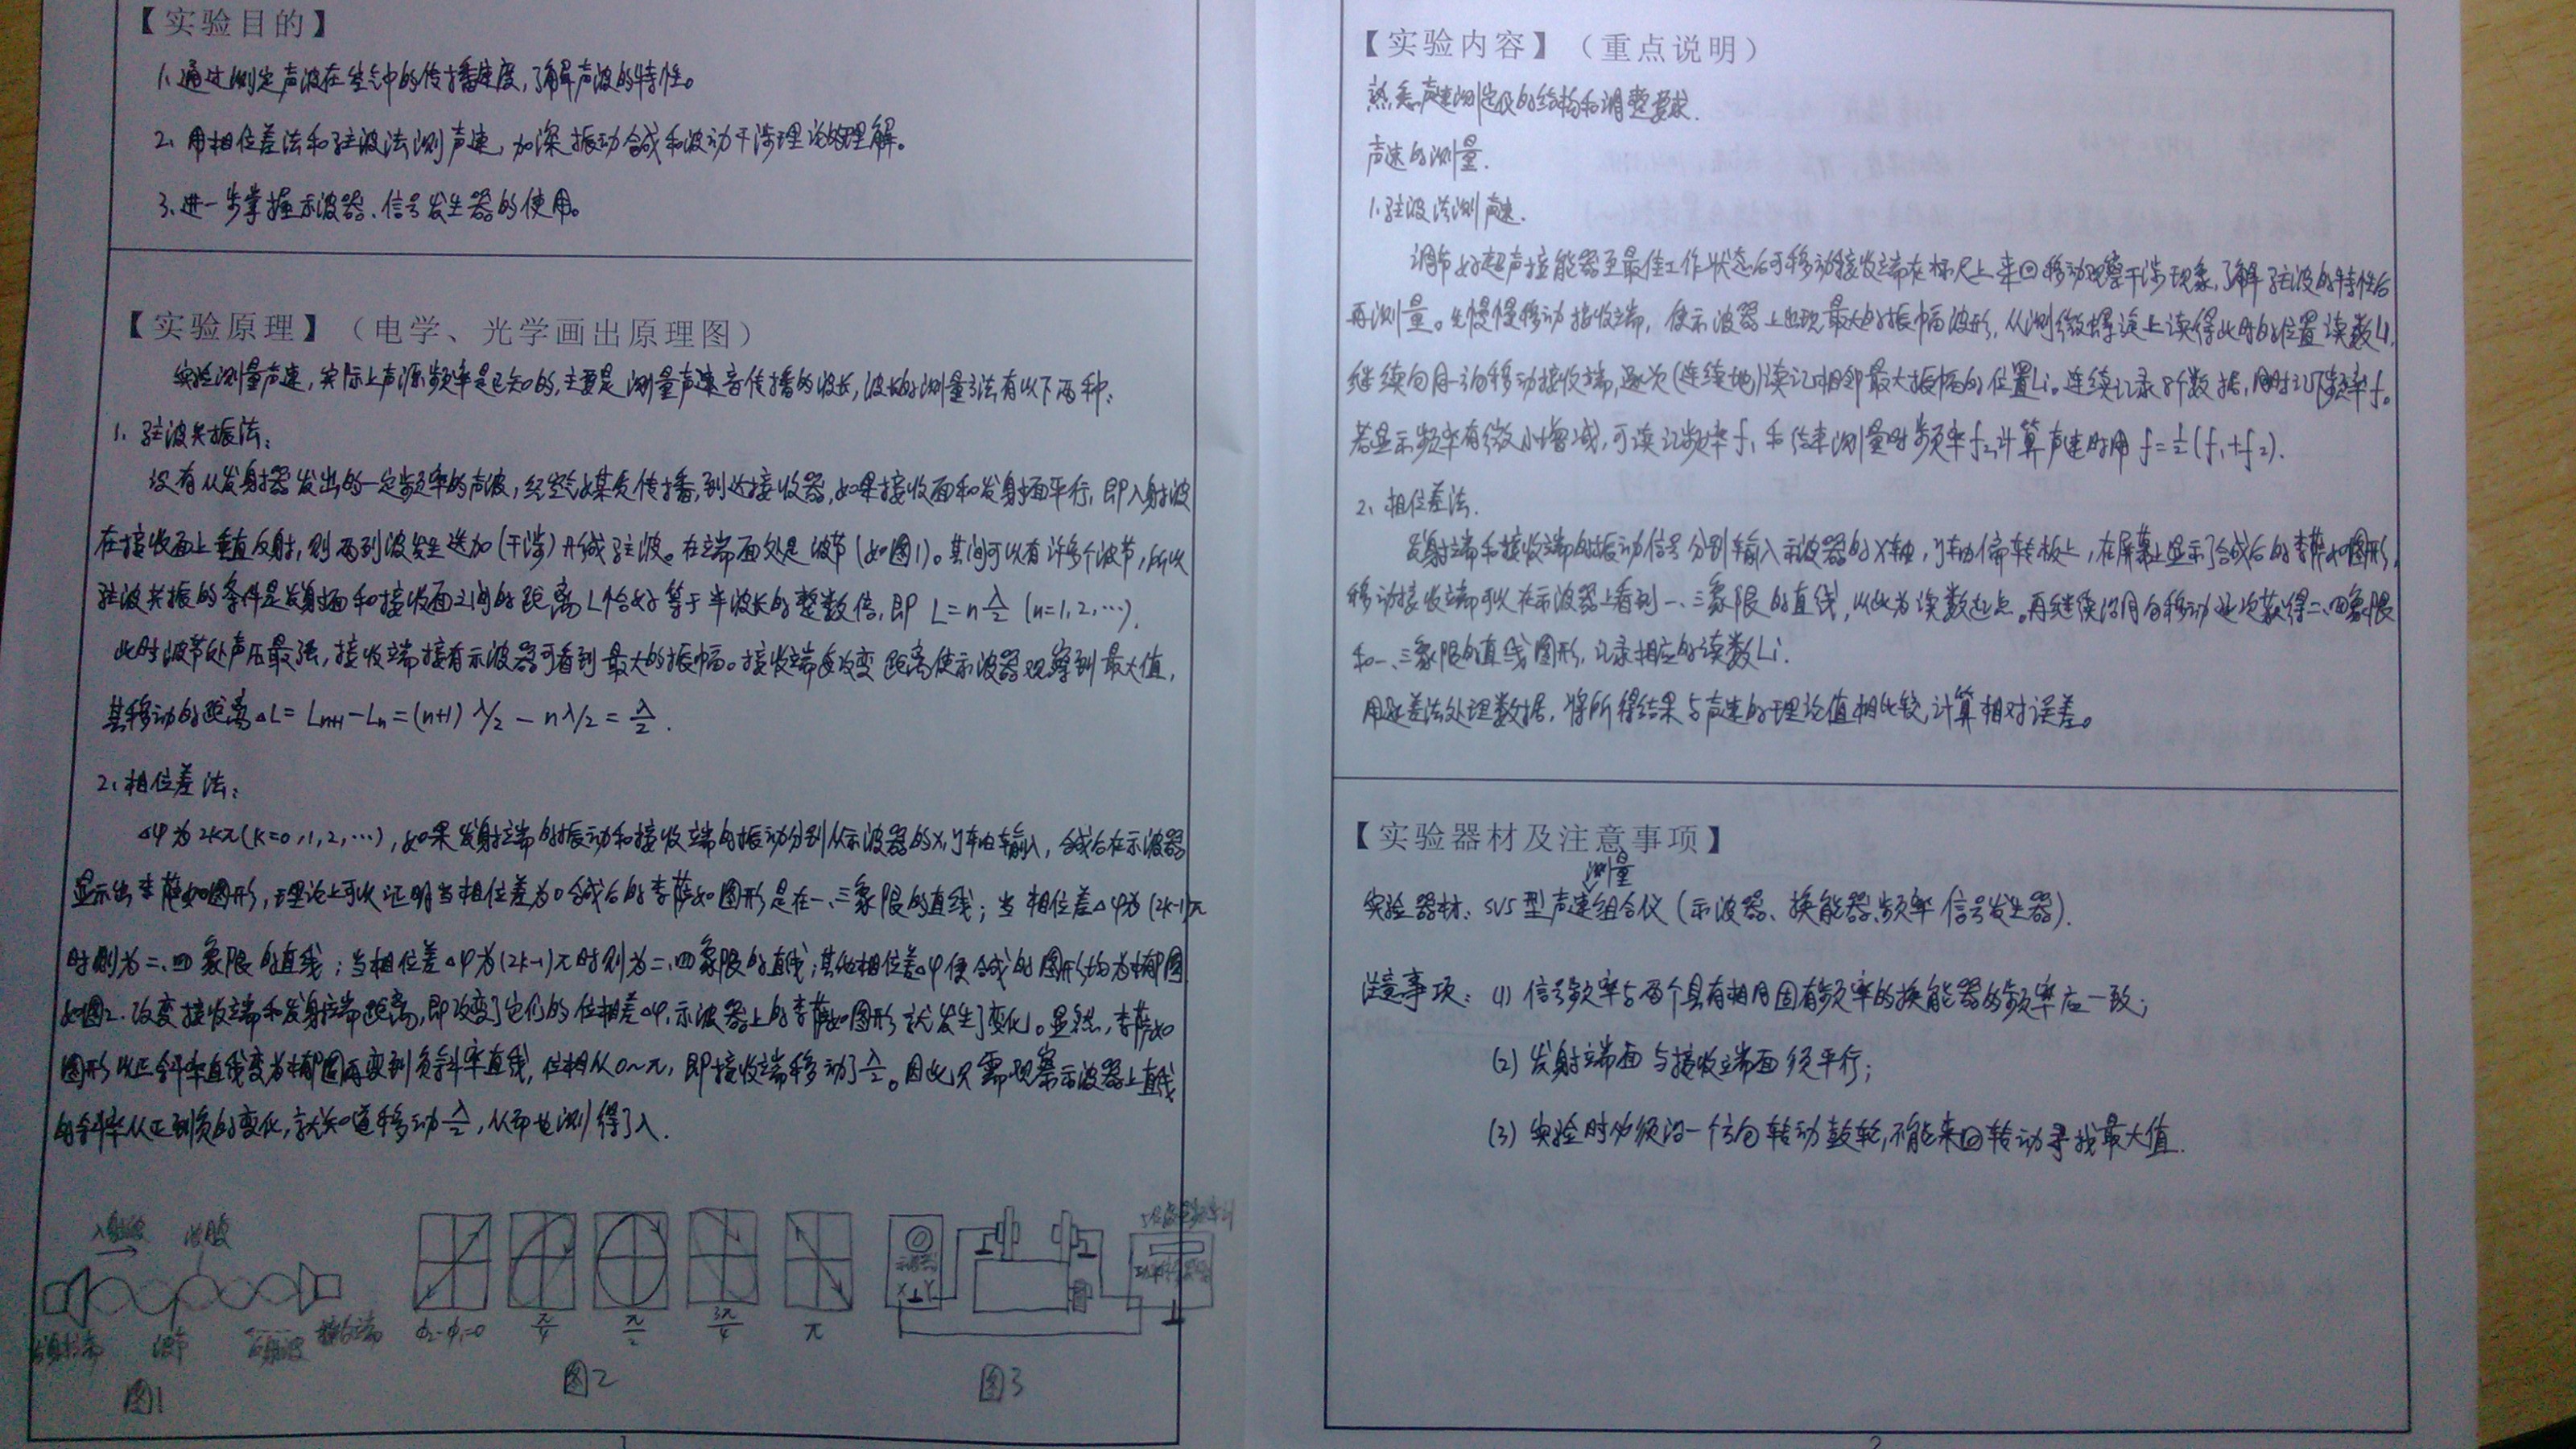 【实验目的】
1、通过测定声波在空气中的传播速度，了解声波的特性。
2、用相位差法和驻波法测声速，加深振动合成和波动干涉理论的理解。
3、进一步掌握示波器、信号发生器的使用。
【实验原理】（电学、光学画出原理图）
实验测量声速，实际上声源频率是已知的，主要是测量声速音传播的波长，波长的测量方法有以下两种：
1、驻波共振法：
设有从发射器发出的一定频率的声波，经空气媒质传播，到达接收器，如果接收面和发射面平行，即入射波
在接收面上垂直反射，则两列波发生迭加（干涉）形成驻波。在端面处是波节（如图1）。其间可以有许多个波节，所以
驻波共振的条件是发射面和接收面之间的距离L恰好等于半波长的整数倍，即 L=n λ/2 (n=1,2,…).
此时波节处声压最强，接收端接有示波器可看到最大的振幅。接收端每改变距离使示波器观察到最大值，
其移动的距离△L= Ln+1-Ln=(n+1) λ/2 - nλ/2 = λ/2 .
2、相位差法：
△φ为2kπ(k=0,1,2,…)，如果发射端的振动和接收端的振动分别从示波器的x，y轴输入，合成后在示波器
显示出李萨如图形，理论上可以证明当相位差为0合成后的李萨如图形是在一、三象限的直线；当相位差△φ为(2k-1)π
时则为二、四象限的直线；当相位差△φ为(2k-1)π时则为二、四象限的直线；其他相位差△φ使合成的图形均为椭圆
如图2. 改变接收端和发射端距离，即改变了它们的位相差△φ，示波器上的李萨如图形就发生了变化。显然，李萨如
图形从正斜率直线变为椭圆再变到负斜率直线，位相从0~π，即接收端移动了λ/2。因此只需观察示波器上直线
的斜率从正到负的变化，就知道移动λ/2，从而也测得了λ.
入射波 波腹
发射端 波节 反射波 接收端
图1
φ2-φ1=0 π/4 π/2 3π/4 π
图2
示波器
X⊥Y
图3
1
【实验内容】（重点说明）
熟悉声速测定仪的结构和调整要求.
声速的测量.
1、驻波法测声速.
调节好超声换能器至最佳工作状态后可移动接收端在标尺上来回移动观察干涉现象，了解驻波的特性后
再测量。先慢慢移动接收端，使示波器上出现最大的振幅波形，从测微螺旋上读得此时的位置读数L1，
继续向同一方向移动接收端，逐次(连续地)读记相邻最大振幅的位置Li。连续记录8个数据，同时记下频率f。
若显示频率有微小增减，可读记频率f1和结束测量时频率f2，计算声速时用 f=1/2(f1+f2).
2、相位差法.
发射端和接收端的振动信号分别输入示波器的X轴，Y轴偏转板上，在屏幕上显示了合成后的李萨如图形，
移动接收端可以在示波器上看到一、三象限的直线，以此为读数起点。再继续沿同向移动逐次获得二、四象限
和一、三象限的直线图形，记录相应的读数Li.
用逐差法处理数据，将所得结果与声速的理论值相比较，计算相对误差。
【实验器材及注意事项】
测量
实验器材：SV5型声速组合仪（示波器、换能器、频率信号发生器）.
注意事项：(1) 信号频率与两个具有相同固有频率的换能器的频率应一致；
(2) 发射端面与接收端面须平行；
(3) 实验时必须沿一个方向转动鼓轮，不能来回转动寻找最大值.
2